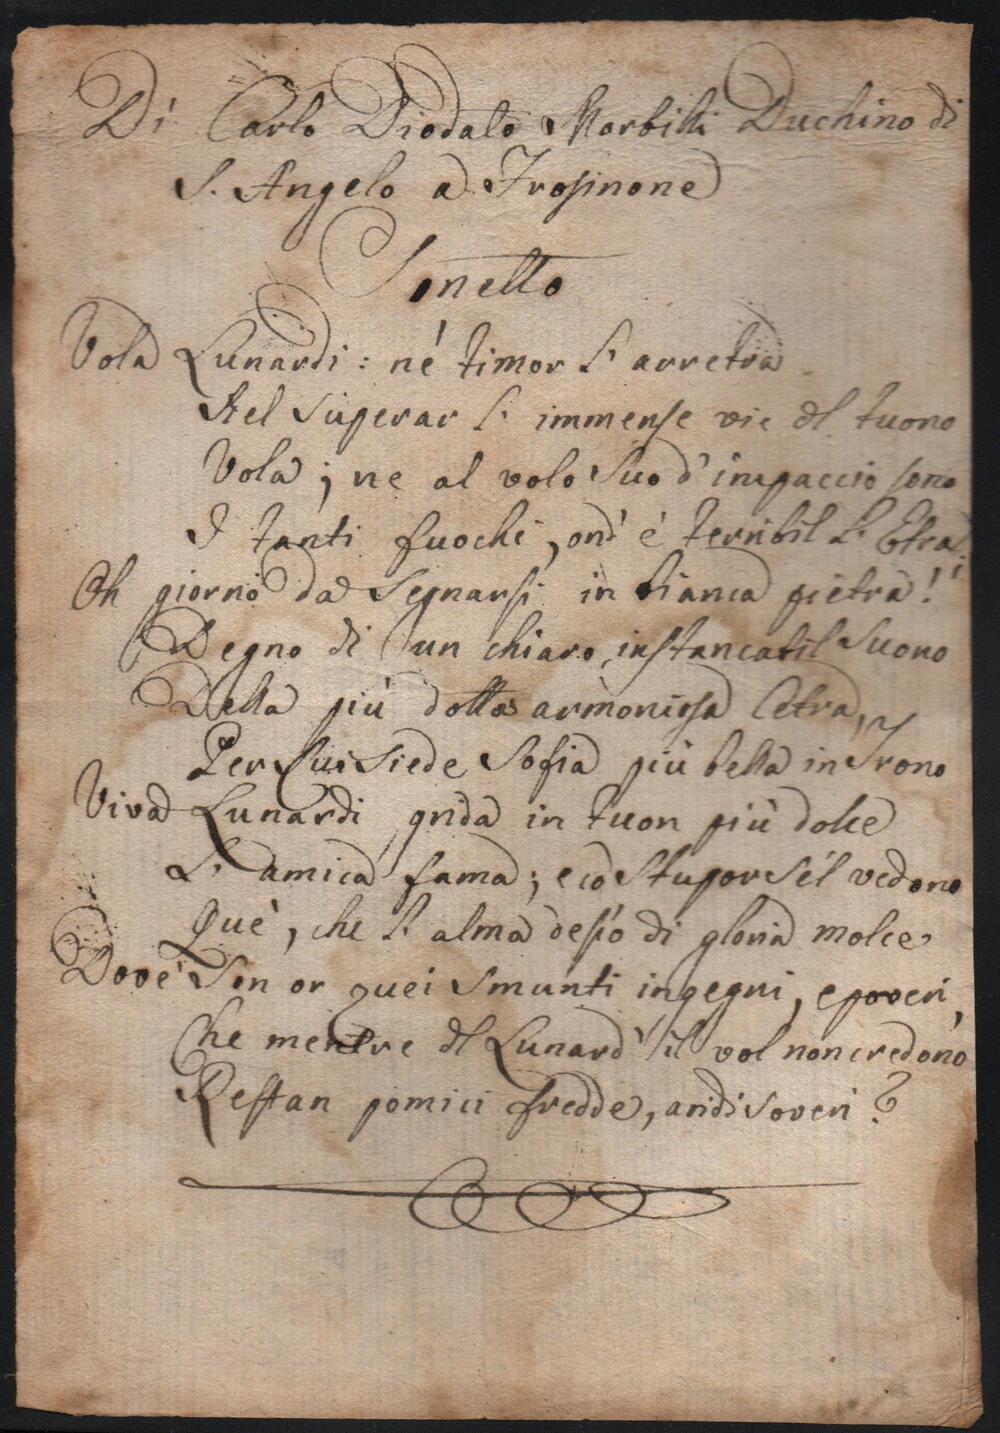 Di Carlo Diodato Morbilli Duchino di
S. Angelo a Frosinone
Sonetto
Vola Lunardi: nè timor l' arretra
Nel superar l' immense vie del tuono
Vola; ne al volo suo d' impaccio sono
I tanti fuochi, ond' è terribil l' Etra.
Oh giorno da segnarsi in bianca pietra!
Degno di un chiaro, instancabil suono
Della più dotta armoniosa Cetra,
Per lui siede Sofia più bella in Trono
Viva Lunardi grida in tuon più dolce
L' amica fama; e cò stupor sel vedono
Que', che l' alma desìo di gloria molce
Dove son or quei smunti ingegni, e poveri,
Che mentre del Lunardi il vol non credono
Restan pomici fredde, aridi soveri?